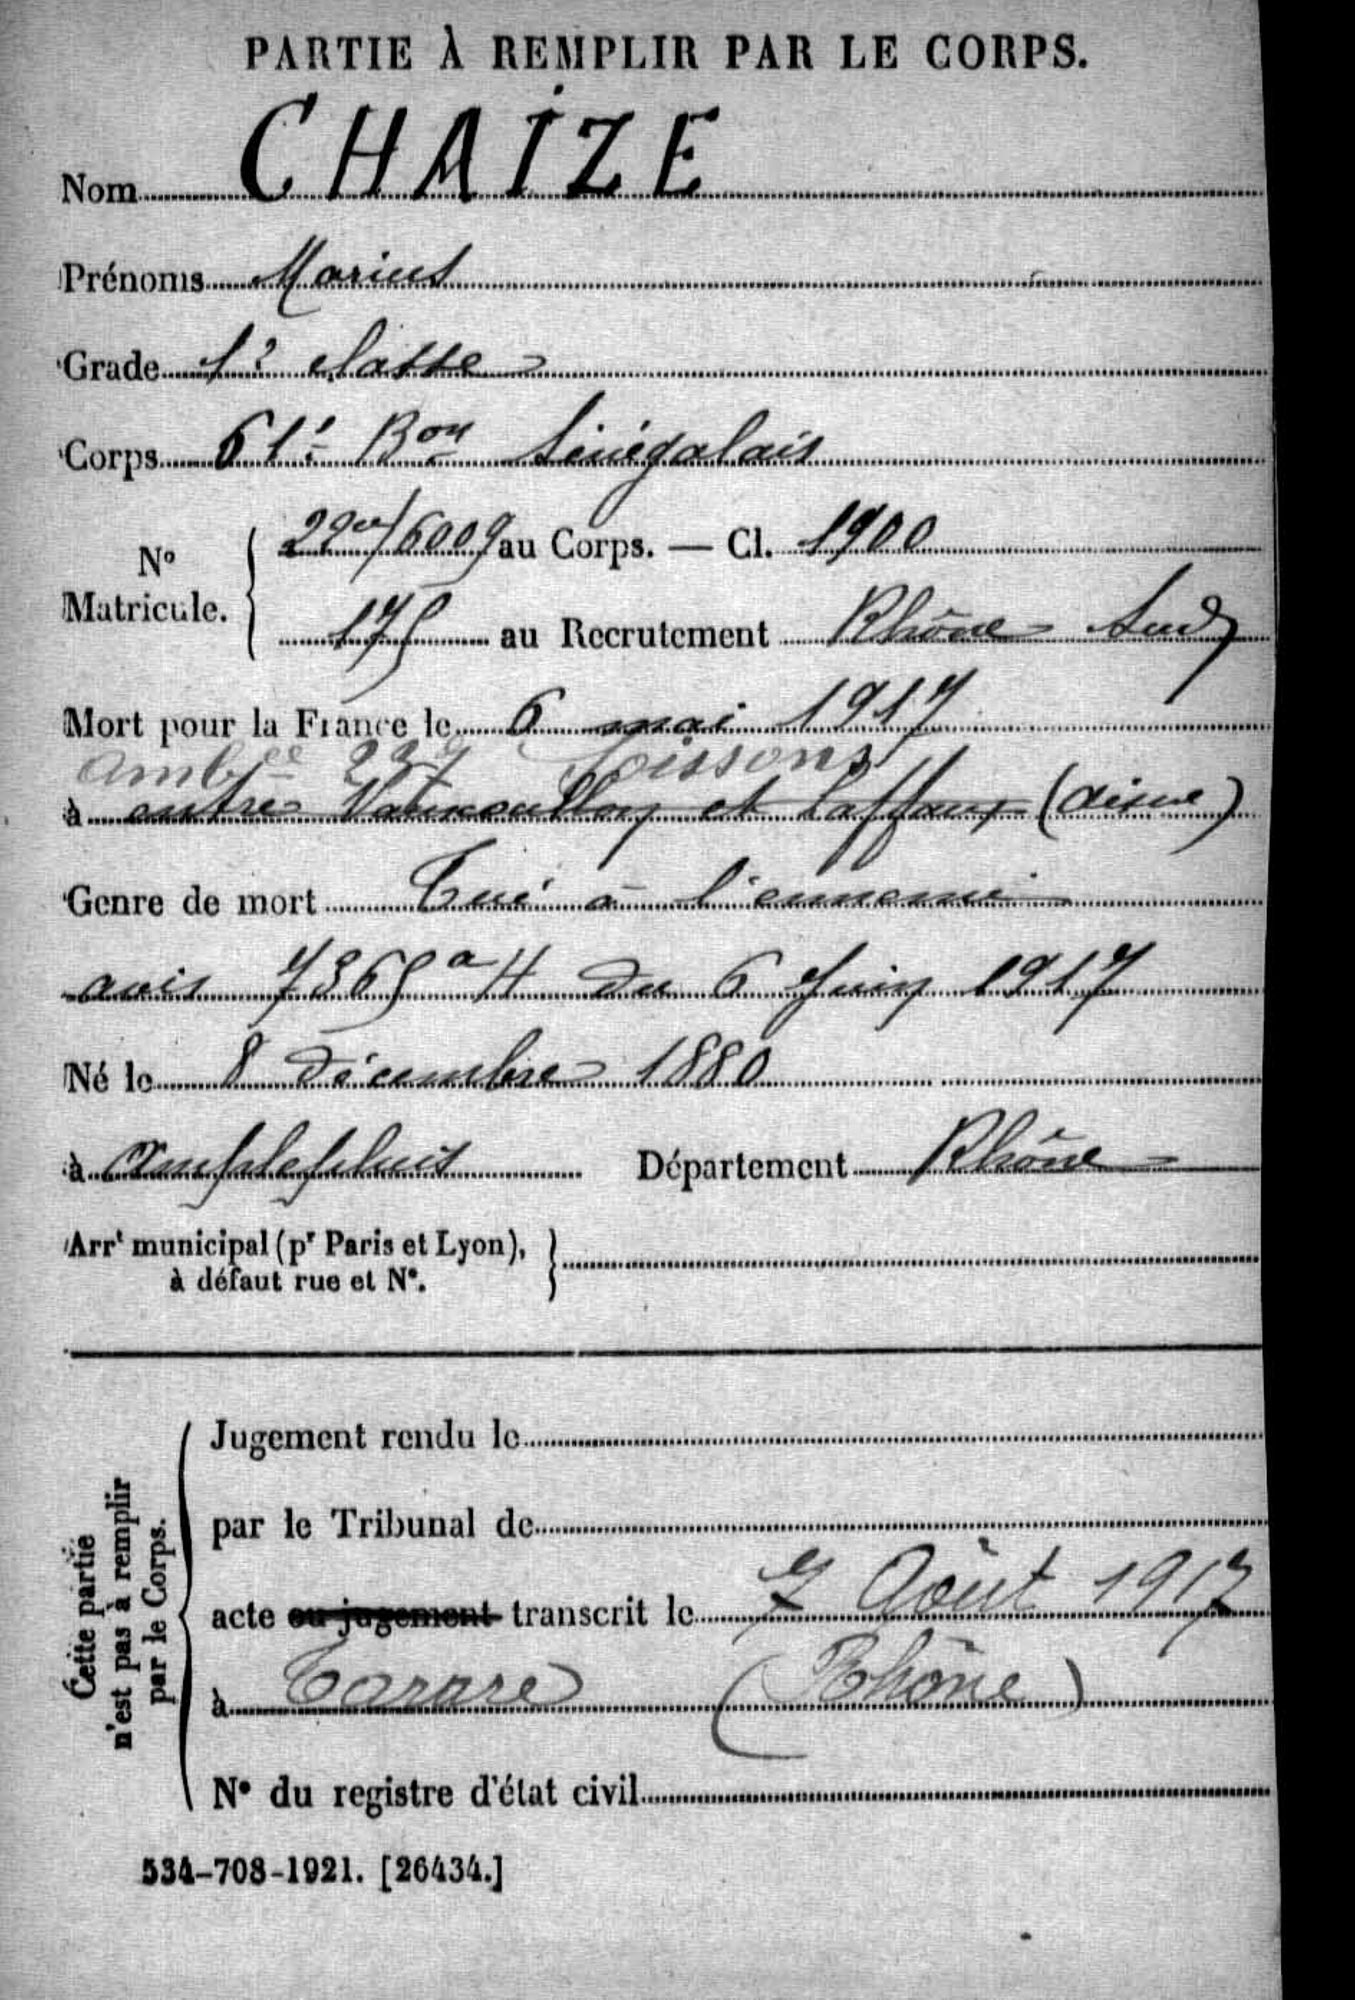 PARTIE À REMPLIR PAR LE CORPS.
Nom CHAIZE
Prénoms Marius
Grade 1e classe
Corps 61e Bon Sénégalais
No Matricule. 22ce/6009 au Corps. — Cl. 1900
175 au Recrutement Rhône Sud
Mort pour la France le 6 mai 1917
Ambce 227 Soissons
à entre et Laffaux (Aisne)
Genre de mort Tué à l'ennemi
avis 7365 a H du 6 Juin 1917
Né le 8 décembre 1880
à Amplepluis Département Rhône
Arrt municipal (pr Paris et Lyon),
à défaut rue et No.
Cette partie
n'est pas à remplir
par le Corps.
Jugement rendu le
par le Tribunal de
acte ou jugement transcrit le 7 Août 1917
à Tarare (Rhône)
No du registre d'état civil
534-708-1921. [26434.]